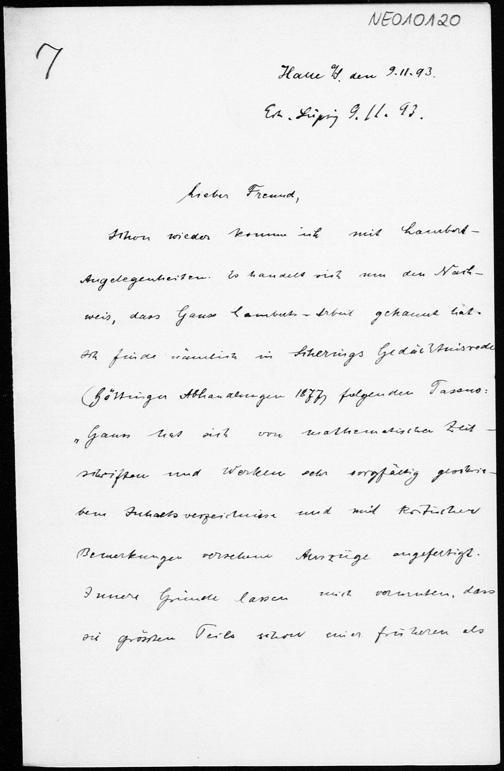 NEO10120
7
Halle a/S. den 9.11.93.
Erh. Leipzig 9.11.93.
Lieber Freund,
Schon wieder komme ich mit Lambert-
Angelegenheiten. Es handelt sich um den Nach-
weis, dass Gauss Lamberts-Arbeit gekannt hat.
Ich finde nämlich in Scherings Gedächtnisrede
(Göttinger Abhandlungen 1877) folgenden Passus:
„Gauss hat sich von mathematischen Zeit-
schriften und Werken sehr sorgfältig geschrie-
bene Inhaltsverzeichnisse und mit kritischen
Bemerkungen versehene Auszüge angefertigt.
Innere Gründe lassen mich vermuten, dass
sie grössten Teils schon einer früheren als